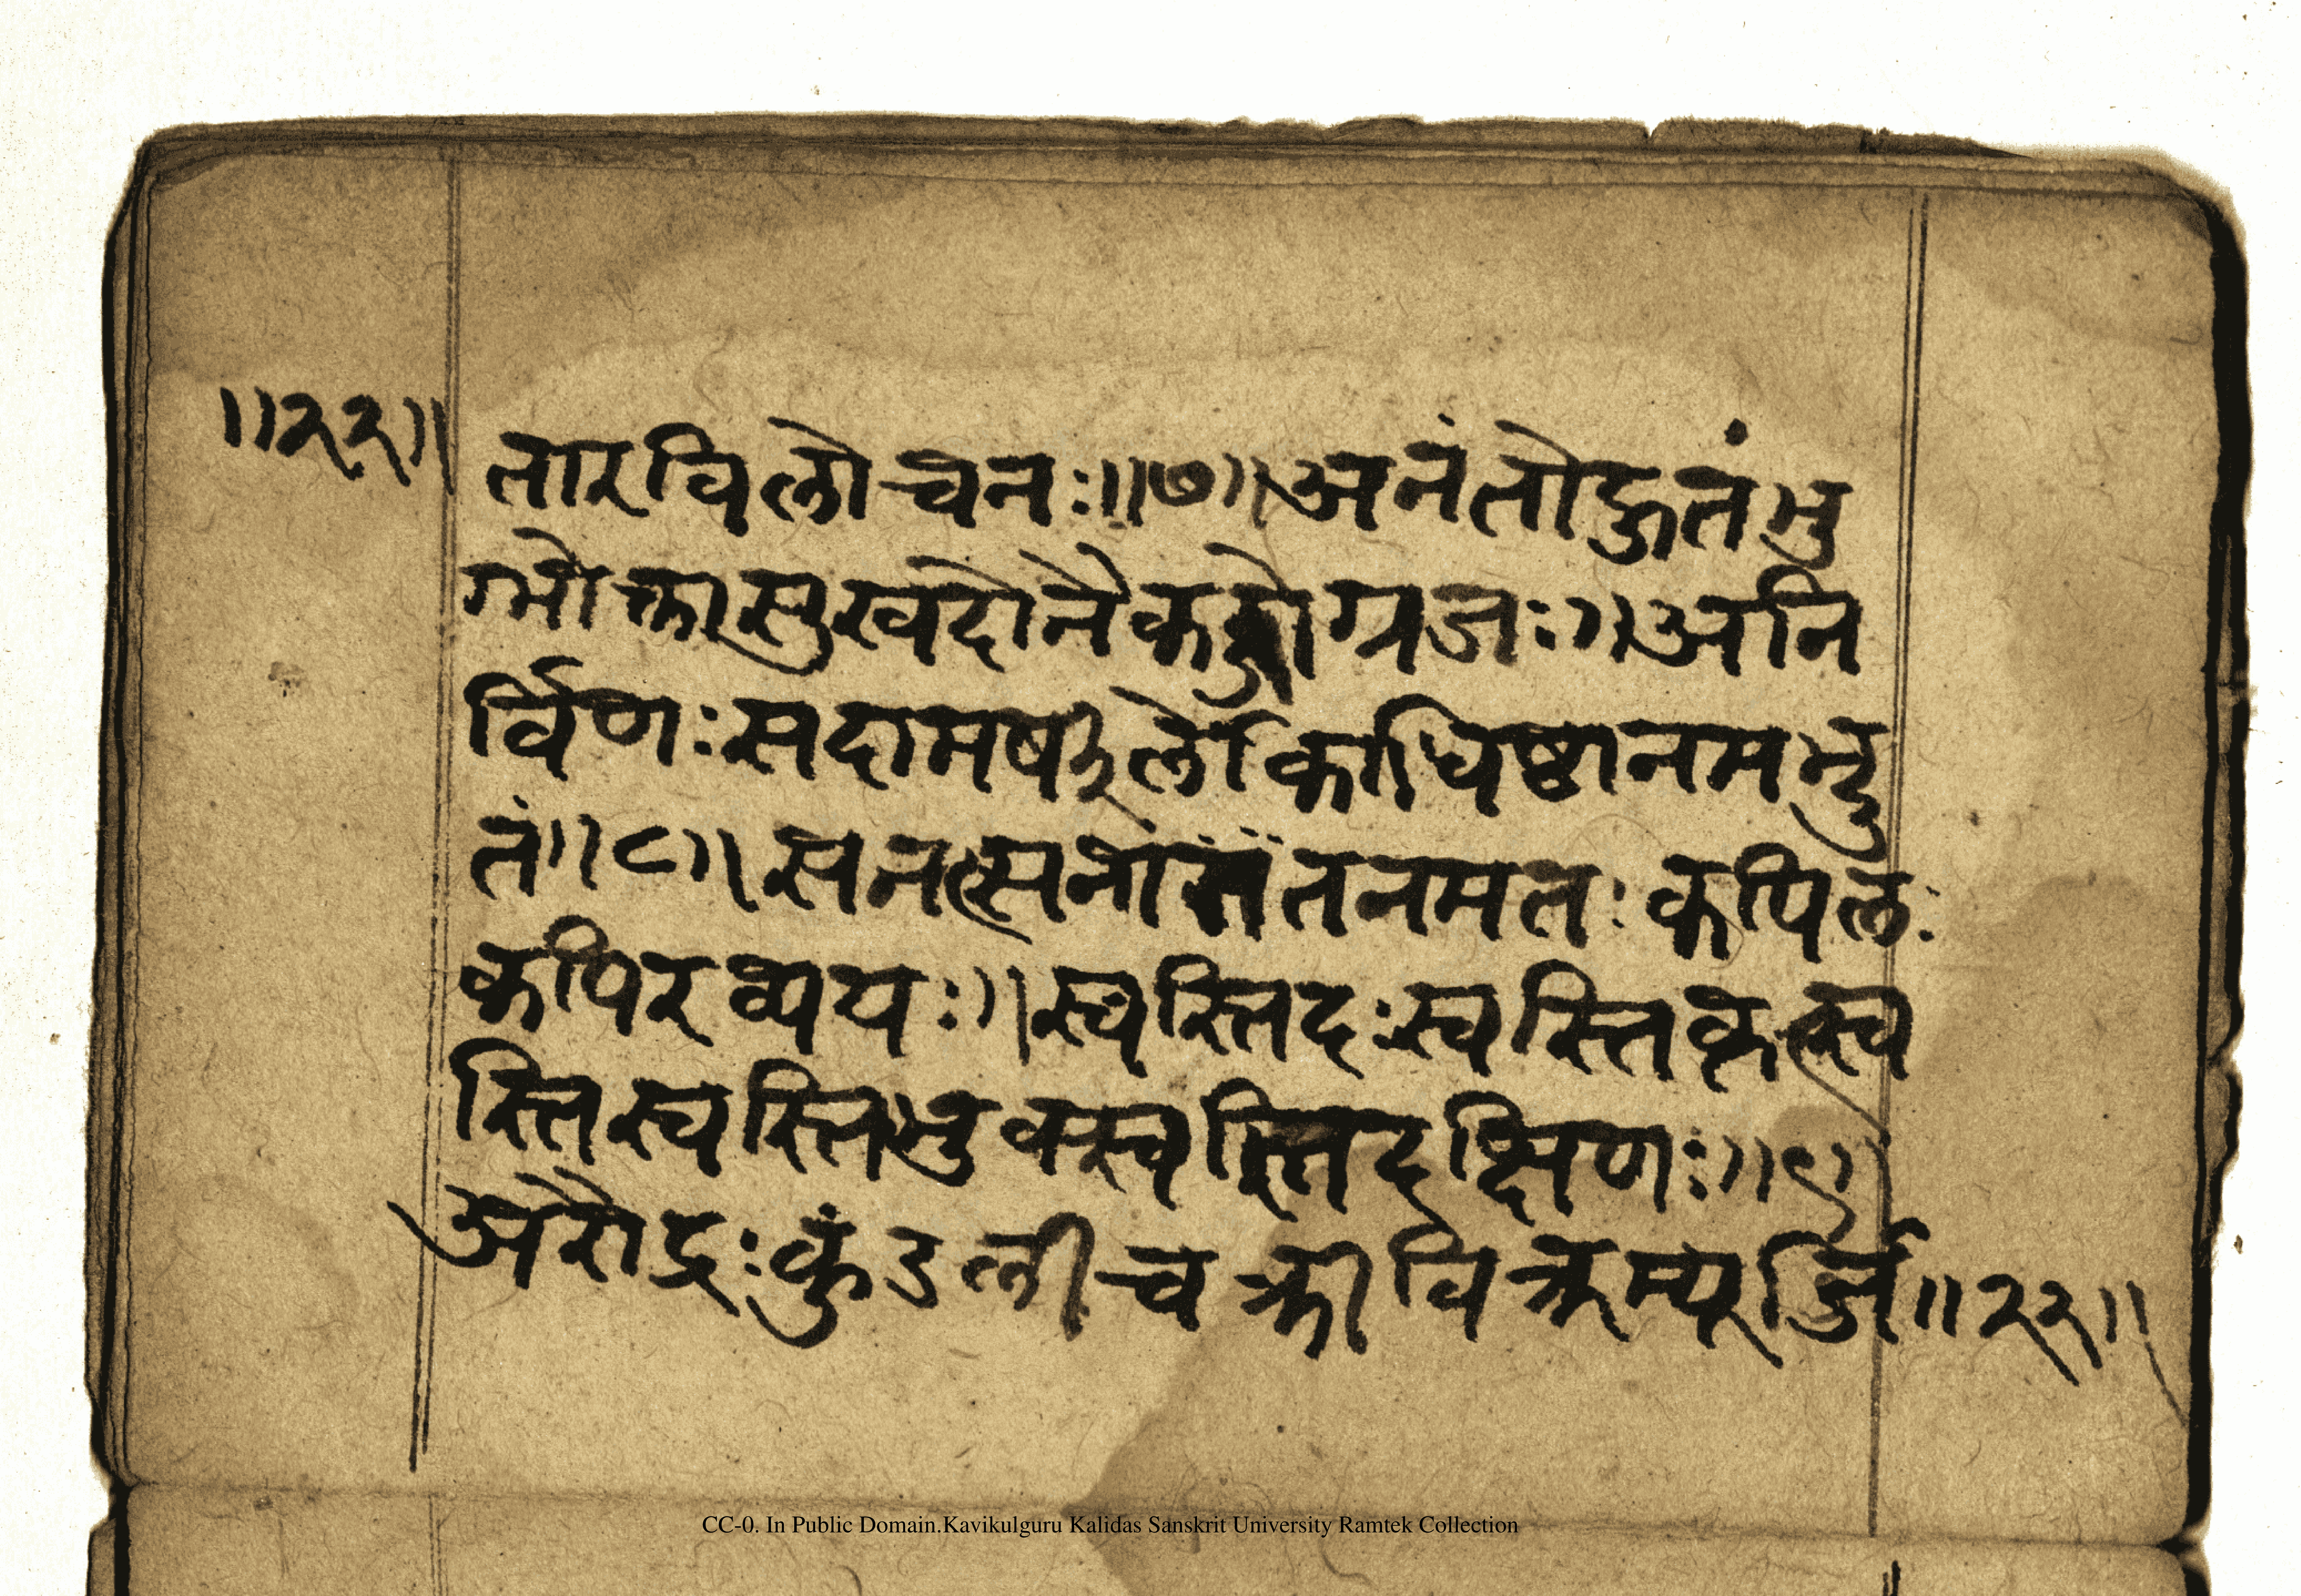 ॥२२॥
तारविलोचनः॥७॥अनंतोद्रुतंभु
ग्भोक्तासुखदोनैक ग्रजः॥अनि
र्विणःसदामषर्लोकाधिष्ठानमभ्दु
तं॥८॥सनत्सनां तनमतःकपिलः
कपिरव्ययः॥स्वस्तिदःस्वस्तिकृत्स्व
स्तिस्वस्तिभुक्स्वस्तिदक्षिणः॥९॥
अरौद्रःकुंडलीचक्रीविक्रम्यूर्जि॥२२॥
CC-0. In Public Domain.Kavikulguru Kalidas Sanskrit University Ramtek Collection